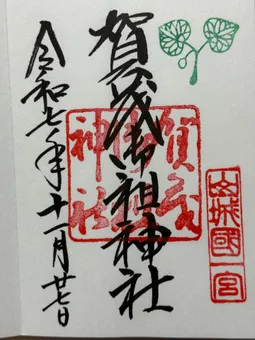 賀茂御祖神社
賀茂
御祖
神社
山城國一宮
令和七年十一月廿七日